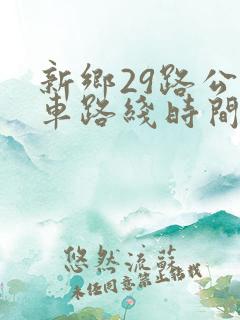 新鄉29路公
車路綫時間
悠然流蘇
未经同意禁止转载